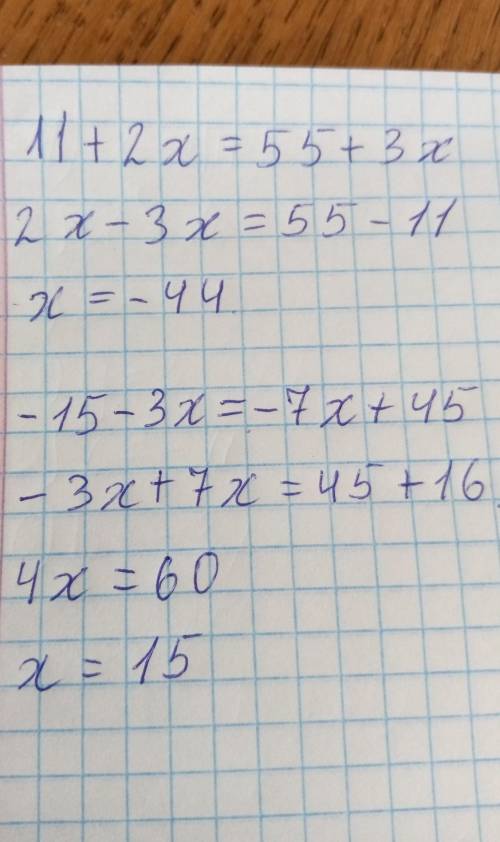 11 + 2x = 55 + 3x
2x - 3x = 55 - 11
x = -44
-15 - 3x = -7x + 45
-3x + 7x = 45 + 16
4x = 60
x = 15